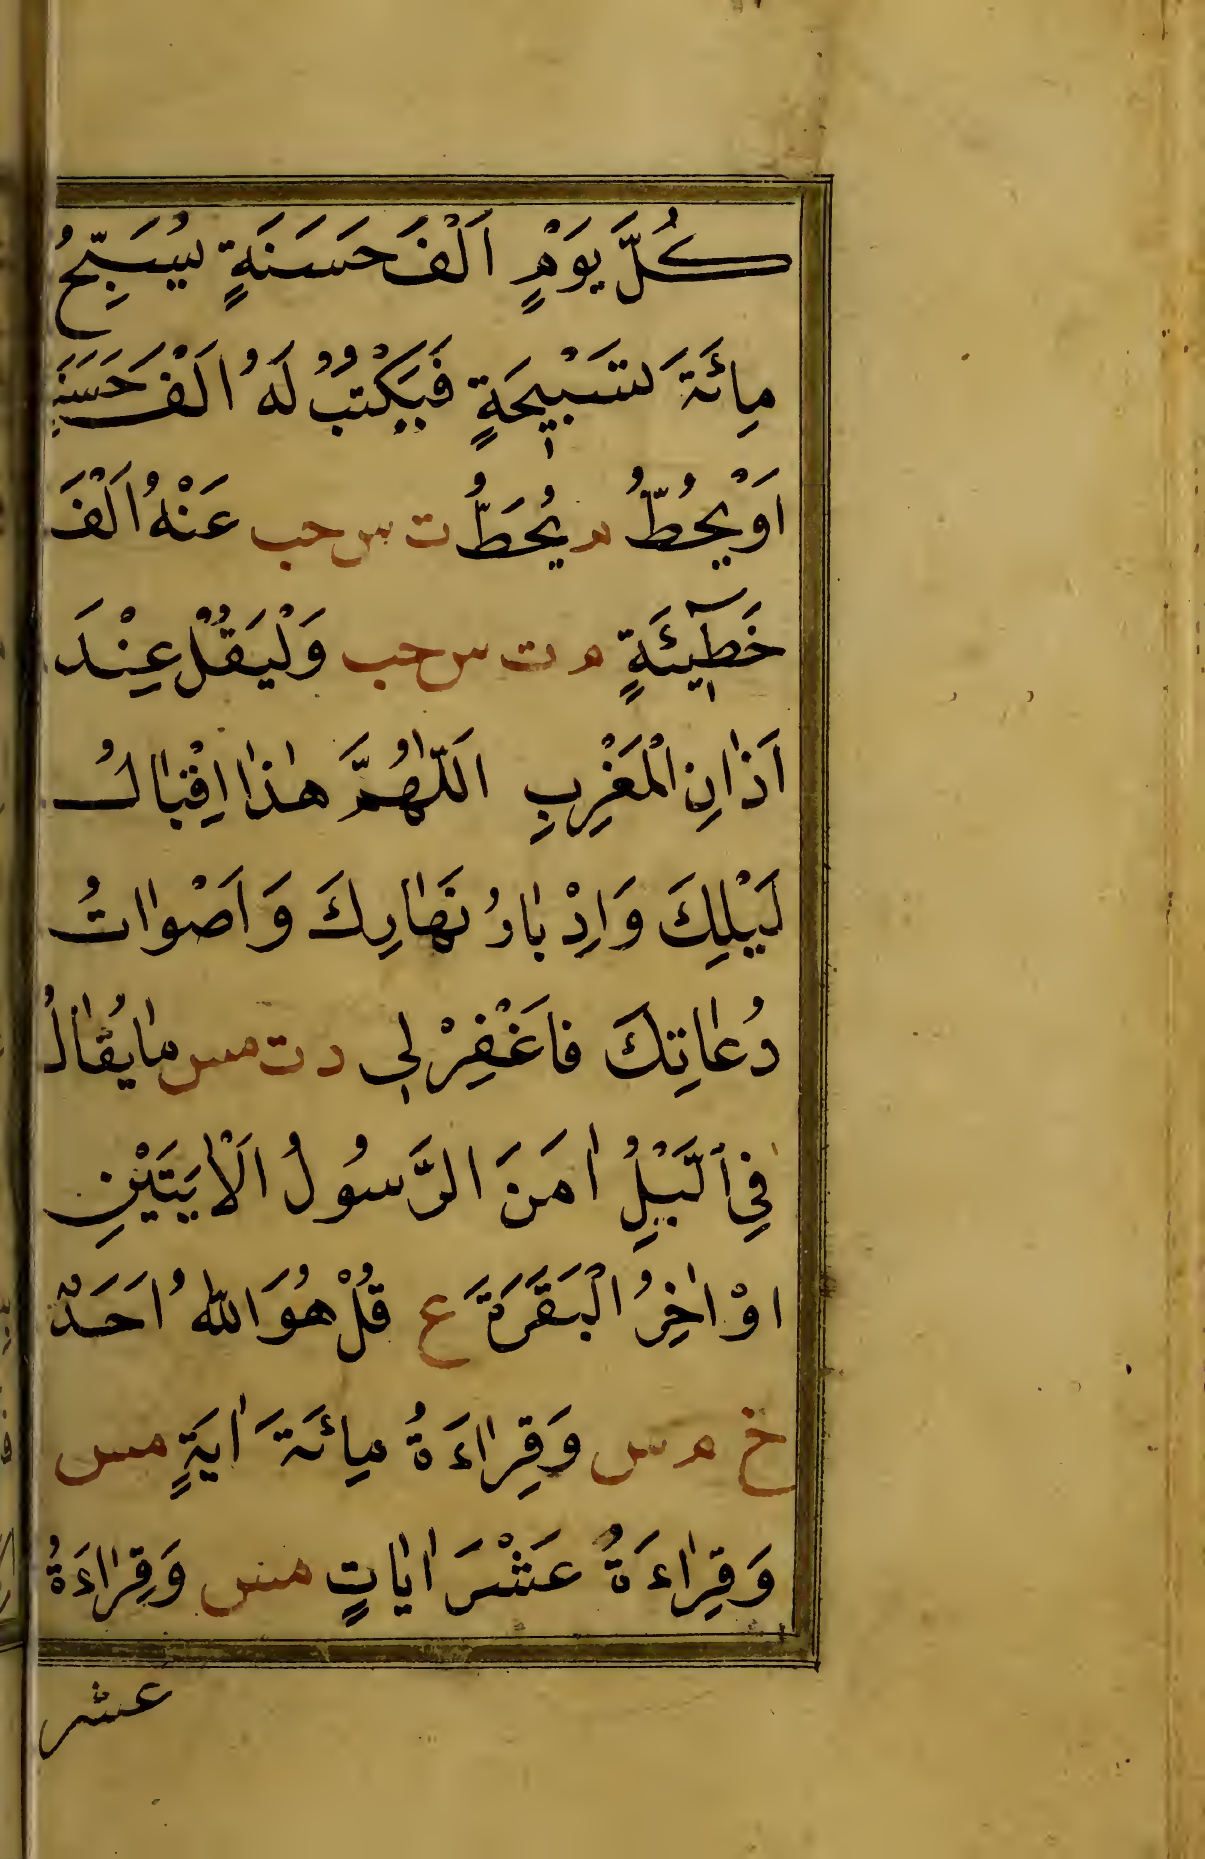 كُلَّ يَوْمٍ اَلْفَ حَسَنَةٍ يُسَبِّحُ
مِائَةَ تَسْبيحَةٍ فَيَكْتُبُ لَهُ اَلْفَ حَسَنَةٍ
اَوْ يُحُطُّ م يُحَطُّ ت س حب عَنْهُ اَلْفَ
خَطٓيئَةٍ م ت س حب وَلْيَقُلْ عِنْدَ
اَذٰانِ الْمَغْرِبِ اَللّٰهُمَّ هٰذٰا اِقْبٰالُ
لَيْلِكَ وَاِدْبٰارُ نَهٰارِكَ وَاَصْوٰاتُ
دُعٰاتِكَ فَاغْفِرْ لي د ت مس مٰا يُقٰالُ
فِي الَّيْلِ اٰمَنَ الرَّسُولُ الْاٰيَتَيْنِ
اَوْ اٰخِرُ الْبَقَرَةِ ع قُلْ هُوَ اللّٰهُ اَحَدٌ
خ م س وَقِرٰاءَةُ مِائَةَ اٰيَةٍ مس
وَقِرٰاءَةُ عَشْرَ اٰيٰاتٍ مس وَقِرٰاءَةُ
عشر